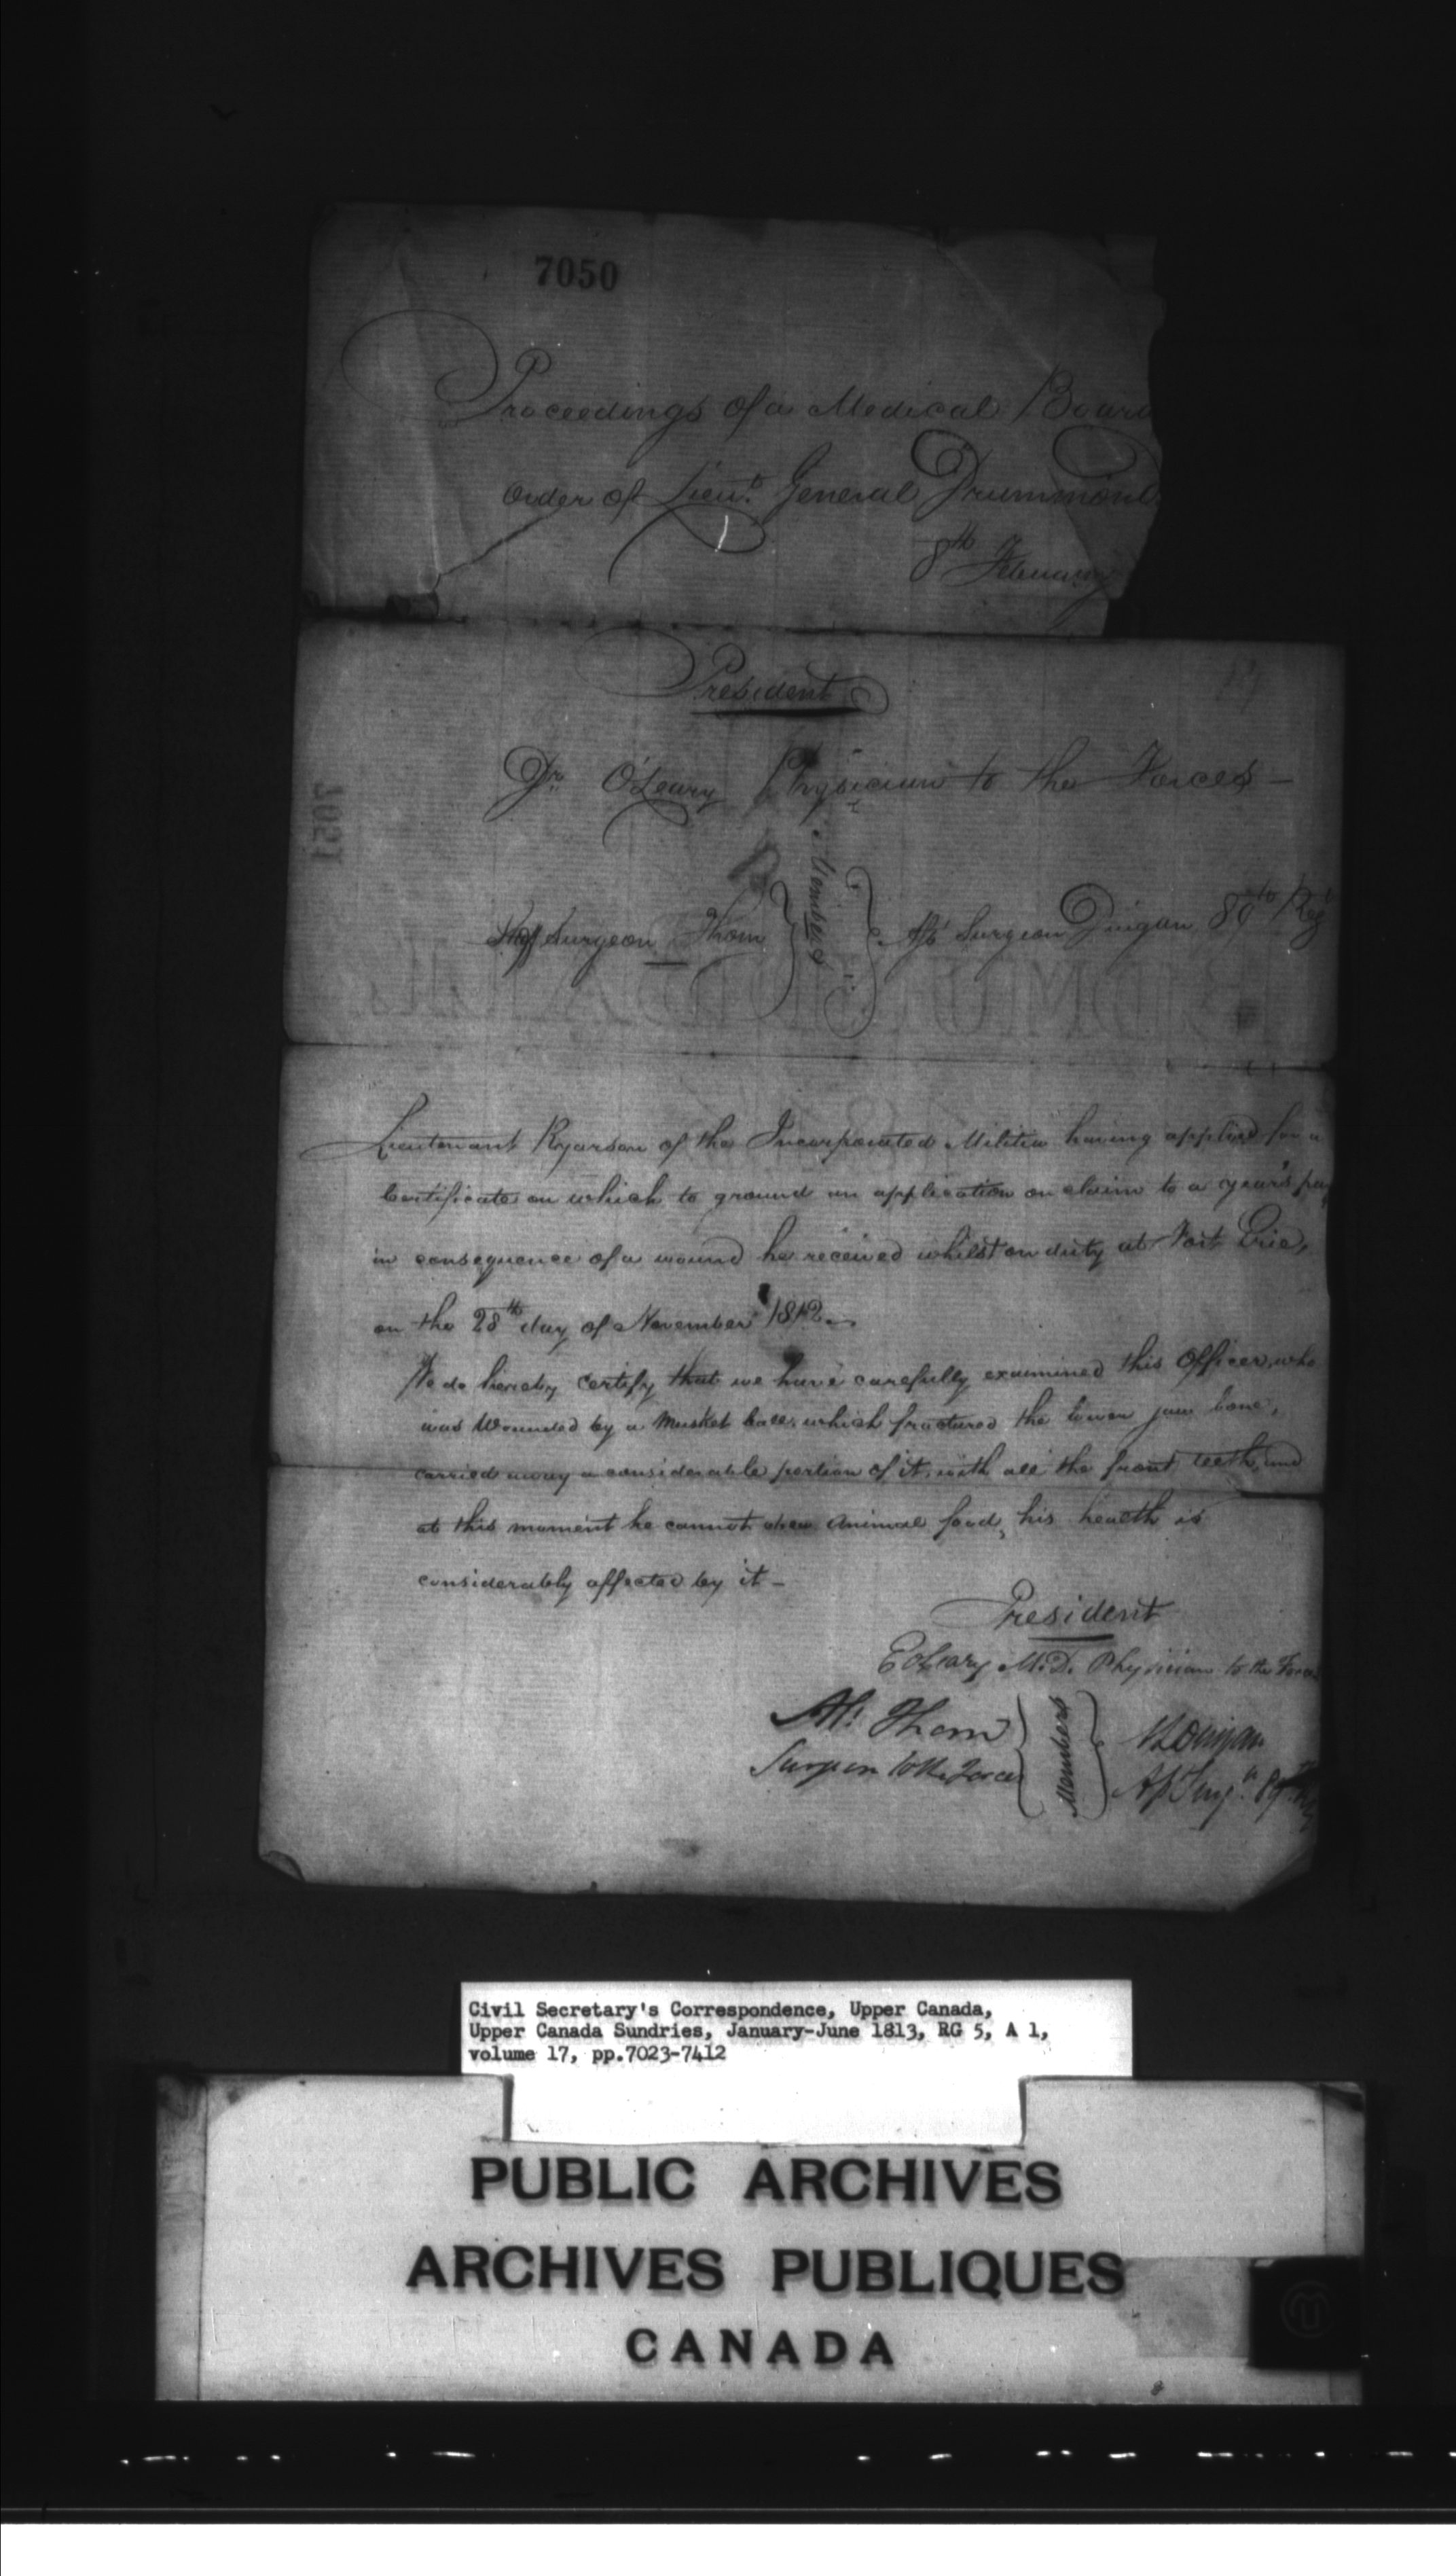 7050
Proceedings of a Medical Board
order of Lieut. General Drummond
8th February
President
Dr. O'Leary Physician to the Forces —
Staff Surgeon Thom
Members
Asst Surgeon Duigan 89th Regt
Lieutenant Ryarson of the Incorporated Militia having applied for a
Certificate on which to ground an application or claim to a year's pay
in consequence of a wound he received whilst on duty at Fort Erie,
on the 28th day of November 1812 —
We do hereby certify that we have carefully examined this Officer, who
was Wounded by a Musket ball, which fractured the lower jaw bone,
carried away a considerable portion of it, with all the front teeth, and
at this moment he cannot chew Animal food, his health is
considerably affected by it —
President
E O'Leary M.D. Physician to the Forces
Al: Thom
Surgeon to the Forces
Members
Duigan
Ast Surgn 89th Reg
Civil Secretary's Correspondence, Upper Canada,
Upper Canada Sundries, January-June 1813, RG 5, A 1,
volume 17, pp.7023-7412
PUBLIC ARCHIVES
ARCHIVES PUBLIQUES
CANADA